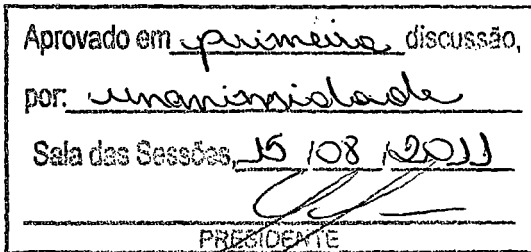 Aprovado em primeira discussão,
por: unanimidade
Sala das Sessões, 15 / 08 / 2011
PRESIDENTE